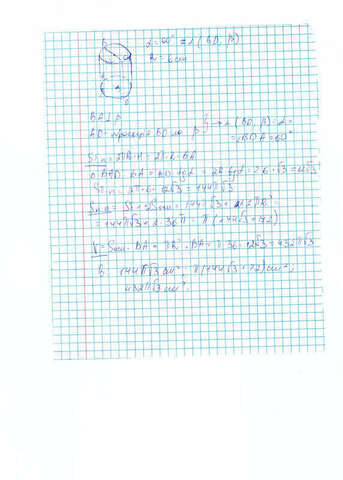 α = 60° = ∠(BD, β)
R = 6 cm
BA ⊥ β
AD - проекція BD на β } → ∠(BD, β) = α =
= ∠BDA = 60°
Sб.п. = 2πR·H = 2π·R·BA
Δ BAD: BA = AD·tgα = 2R tgα = 2·6·√3 = 12√3
Sб.п. = 2π·6·12√3 = 144π√3
Sп.п. = Sб + 2Sосн = 144π√3 + 2πR² =
= 144π√3 + 2·36π = π(144√3+72)
V = Sосн·BA = πR²·BA = π·36·12√3 = 432π√3
144π√3 cm², π(144√3+72) cm²,
432π√3 cm³.